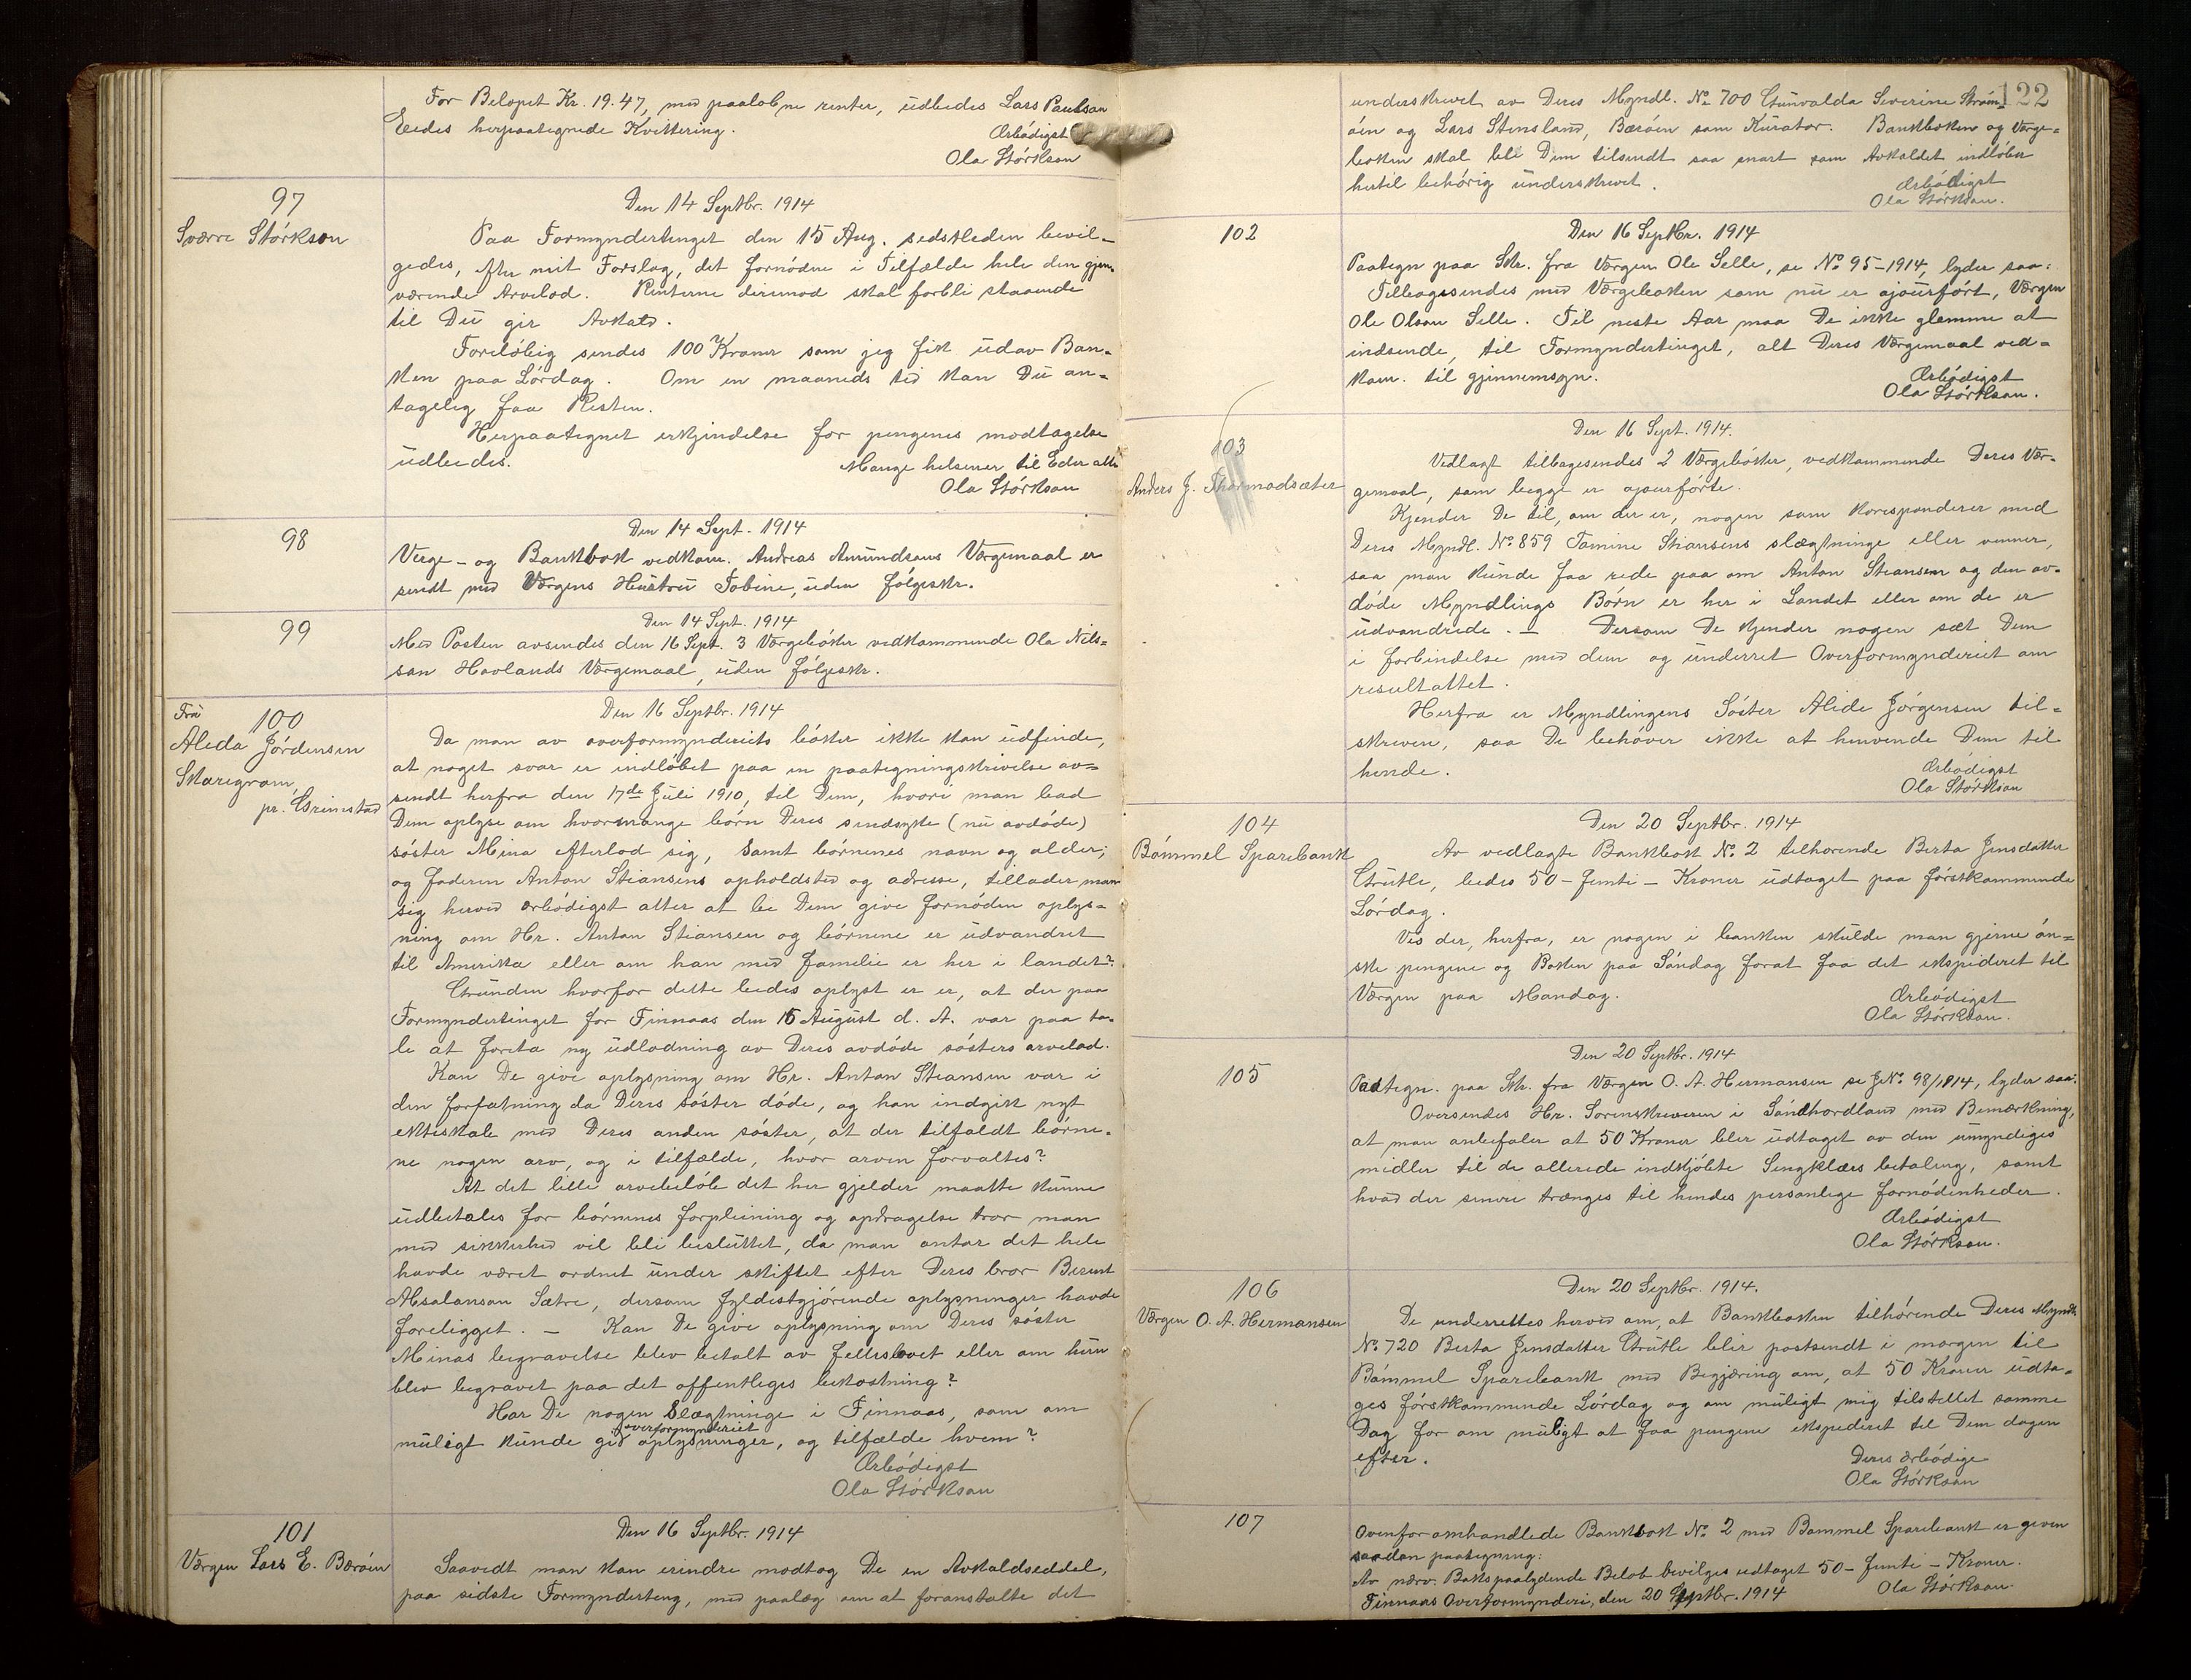 For Beløpet Kr. 19.47, med paaløbne renter, udbedes Lars Paulsan
Eides herpaategnede Kvittering.
Ærbødigst
Ola Størksan
97
Sværre Størkson
Den 14 Septbr. 1914
Paa Formyndertinget den 15 Aug. sidstleden bevil-
gedes, efter mit Forslag, det fornødne i Tilfælde hele den gjen-
værende Arvelod. Renterne derimod skal forbli staaende
til Du gir Avkald.
Foreløbig sendes 100 Kroner som jeg fik udav Ban-
ken paa Lørdag. Om en maaneds tid kan Du an-
tagelig faa Resten.
Herpaategnet erkjendelse for pengenes modtagelse
udbedes.
Mange helsener til Eder alle
Ola Størksan
98
Den 14 Sept. 1914
Verge- og Bankbok vedkom. Andreas Amundsens Værgemaal er
sendt med Værgens Hustru Tobine, uden følgeskr.
99
Den 14 Sept. 1914
Med Posten avsendes den 16 Sept. 3 Værgebøker vedkommende Ola Nils-
san Havlands Værgemaal, uden følgeskr.
Fra
100
Aleda Jørdensen
Skaregrøm,
pr. Grimstad
Den 16 Septbr. 1914
Da man av overformynderiets bøker ikke kan udfinde,
at noget svar er indløbet paa en paategningsskrivelse av-
sendt herfra den 17de Juli 1910, til Dem, hvori man bad
Dem oplyse om hvormange børn Deres sindsyke (nu avdøde)
søster Mina efterlod sig, samt børnenes navn og alder;
og faderen Anton Stiansens opholdsted og adresse, tillader man
sig herved ærbødigst atter at be Dem give fornøden oplys-
ning om Hr. Anton Stiansen og børnene er udvandret
til Amerika eller om han med familie er her i landet?
Grunden hvorfor dette bedes oplyst er er, at der paa
Formyndertinget for Finnaas den 15 August d. A. var paa ta-
le at foreta ny udlodning av Deres avdøde søsters arvelod.
Kan De give oplysning om Hr. Anton Stiansen var i
den forfatning da Deres søster døde, og han indgik nyt
ekteskab med Deres anden søster, at der tilfaldt børne-
ne nogen arv, og i tilfælde, hvor arven forvaltes?
At det lille arvebeløb det her gjelder maatte kunne
udbetales for børnenes forpleining og opdragelse tror man
med sikkerhed vil bli besluttet, da man antar det hele
havde været ordnet under skiftet efter Deres bror Berent
Absalansan Sætre, dersom fyldestgjørende oplysninger havde
foreligget. — Kan De give oplysning om Deres søster
Minas begravelse blev betalt av fellesboet eller om hun
blev begravet paa det offentleges bekostning?
Har De nogen Slægtninge i Finnaas, som om
muligt kunde gi overformynderiet oplysninger, og tilfælde hvem?
Ærbødigst
Ola Størksan
101
Værgen Lars E. Bærøen
Den 16 Septbr. 1914
Saavedt man kan erindre modtog De en Avkaldseddel,
paa sidste Formynderteng, med paalæg om at foranstalte det
122
underskrevet av Deres Myndl. No 700 Gunvalda Severine Strøm-
øen og Lars Stensland, Bærøen som Kurator. Bankboken og Værge-
boken skal bli Dem tilsendt saa snart som Avkaldet indløber
hertil behørig underskrevet.
Ærbødigst
Ola Størksan.
102
Den 16 Septbr. 1914
Paategn paa Skr. fra Værgen Ole Selle, se No 95-1914, lyder saa:
Tilbagesendes med Værgeboken som nu er ajourført, Værgen
Ole Olson Selle. Til neste Aar maa De ikke glemme at
indsende, til Formyndertinget, alt Deres Værgemaal ved-
kom. til gjennemsyn.
Ærbødigst
Ola Størksan.
103
Anders J. Thormodsæter
Den 16 Sept. 1914.
Vedlagt tilbagesendes 2 Værgebøker, vedkommende Deres Vær-
gemaal, som begge er ajourførte.
Kjender De til, om der er, nogen som korresponderer med
Deres Myndl. No 859 Tomine Stiansens slægtninge eller venner,
saa man kunde faa rede paa om Anton Stiansen og den av-
døde Myndlings Børn er her i Landet eller om de er
udvandrede. — Dersom De kjender nogen sæt Dem
i forbindelse med dem og underret Overformynderiet om
resultattet.
Herfra er Myndlingens Søster Alide Jørgensen til-
skreven, saa De behøver ikke at henvende Dem til
hende.
Ærbødigst
Ola Størksan
104
Bømmel Sparebank
Den 20 Septbr. 1914
Av vedlagte Bankbok No 2 tilhørende Berta Jensdatter
Grutle, bedes 50 - femti - Kroner udtaget paa førstkommende
Lørdag.
Vis der, herfra, er nogen i banken skulde man gjerne øn-
ske pengene og Boken paa Søndag forat faa det ekspideret til
Værgen paa Mandag.
Ærbødigst
Ola Størksan.
105
Den 20 Septbr. 1914
Paategn. paa Skr. fra Værgen O. A. Hermansen se JNo 98/1914, lyder saa:
Oversendes Hr. Sorenskriveren i Søndhordland med Bemærkning,
at man anbefaler at 50 Kroner blir udtaget av den umyndiges
midler til de allerede indkjøbte Sengklærs betaling, samt
hvad der senere trænges til hendes personlige fornødenheder.
Ærbødigst
Ola Størksan.
106
Værgen O. A. Hermansen
Den 20 Septbr. 1914.
De underrettes herved om, at Bankboken tilhørende Deres Myndl.
No 720 Berta Jensdatter Grutle blir postsendt i morgen til
Bømmel Sparebank med Begjæring om, at 50 Kroner udta-
ges førstkommende Lørdag og om muligt mig tilstellet samme
Dag for om muligt at faa pengene ekspederet til Dem dagen
efter.
Deres ærbødige
Ola Størksan
107
Ovenfor omhandlede Bankbok No 2 med Bømmel Sparebank er given
saadan paategning:
Av nærv. Boks paalydende Beløb bevilges udtaget 50 - femti - Kroner.
Finnaas Overformynderi, den 20 Septbr. 1914
Ola Størksan.